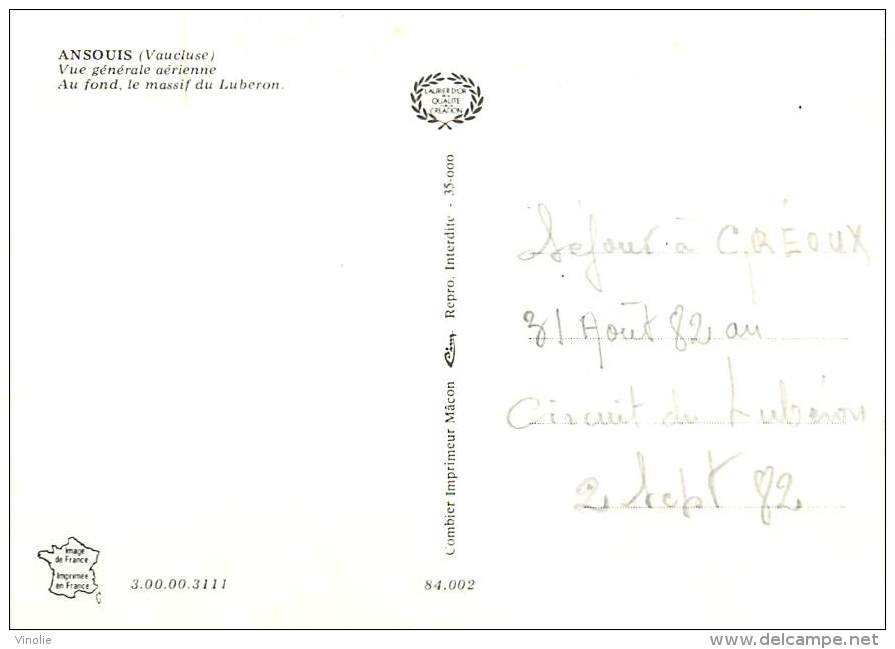 ANSOUIS (Vaucluse)
Vue générale aérienne
Au fond, le massif du Luberon.
LAURIER D'OR
DE LA
QUALITÉ
CRÉATION
Combier Imprimeur Mâcon Cim Repro. Interdite - 35-000
Séjour à GRÉOUX
31 Août 82 au
Circuit du Lubéron
2 Sept 82
Image
de France
Imprimée
en France
3.00.00.3111
84.002
Vinolie
delcampe.net